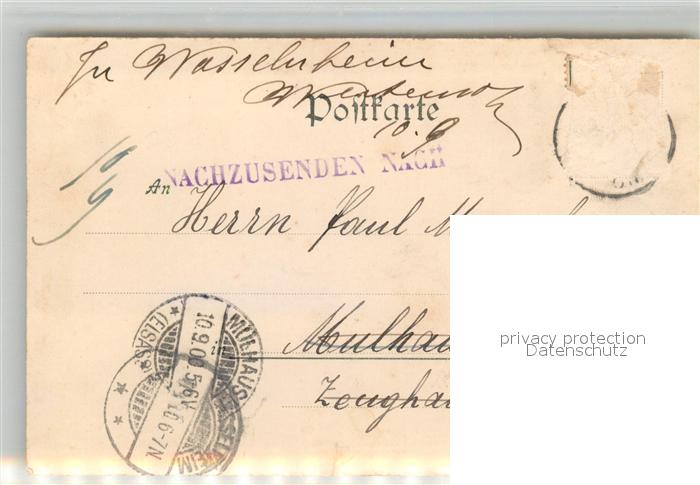 in Wasselnheim
Postkarte
10.9
10
9
NACHZUSENDEN NACH
An
Herrn Paul M
in Mulhau
Zeugha
MÜLHAUSEN
(ELSASS)
10.9.00 5-6V
10 6-7N
HEIM
privacy protection
Datenschutz